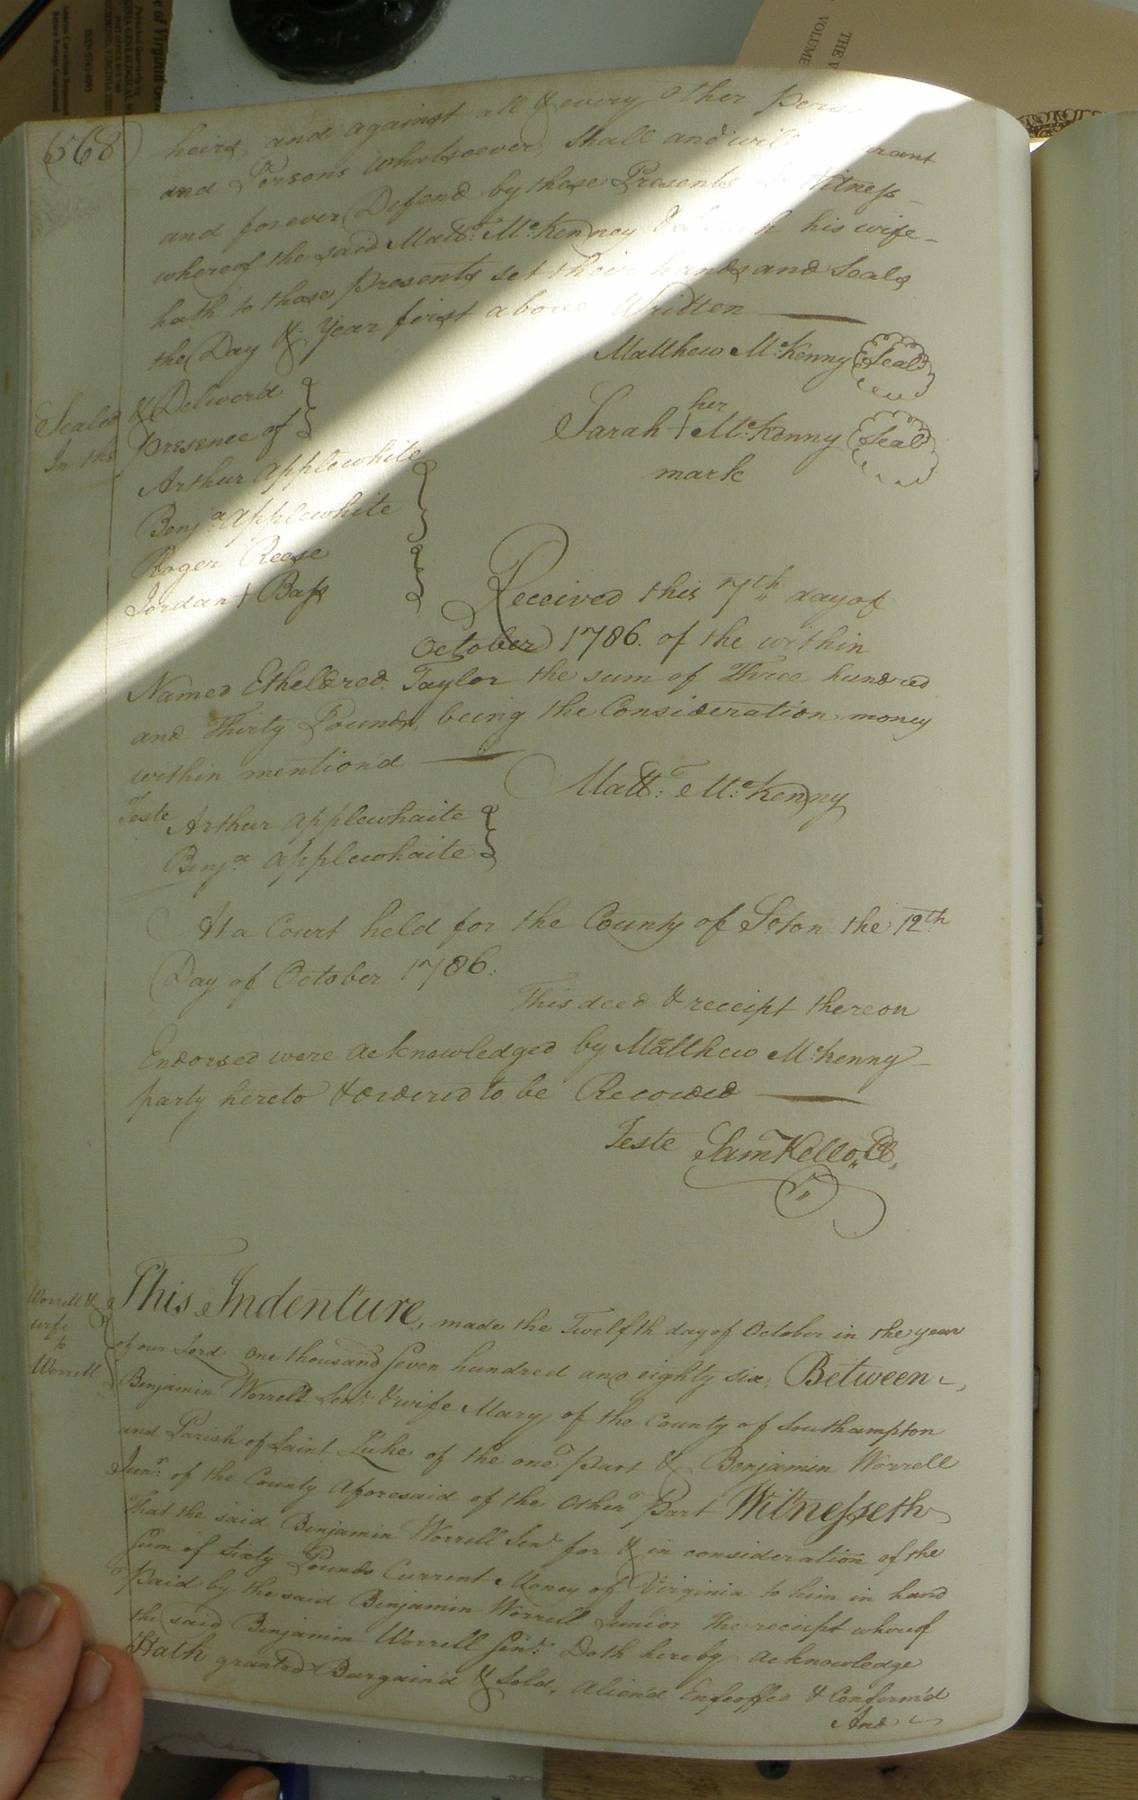 568
heirs, and against all & every other Pers
and Persons whatsoever, shall and will
and forever Defend by these Presents In Witness
whereof the said Matt: McKenney & Sarah his wife
hath to these Presents set their hands and Seals
the Day & Year first above Written
Matthew McKenny Seal
Sealed & Deliverd
In the presence of
her
Sarah + McKenny Seal
mark
Arthur Applewhite
Benja Applewhite
Roger Reese
Jordan + Bass
Received this 7th day of
October 1786. of the within
Named Etheldred Taylor the sum of Three hundred
and Thirty Pounds, being the Consideration money
within mention'd
Matt: McKenny
Teste Arthur Applewhaite
Benja Applewhaite
At a Court held for the County of Soton the 12th
Day of October 1786.
This deed & receipt thereon
Endorsed were acknowledged by Matthew McKenny
party hereto & ordered to be Recorded
Teste Sam Kello, Cl,
Worrell &
wife
to
Worrell
This Indenture, made the Twelfth day of October in the year
of our Lord one thousand Seven hundred and eighty six, Between
Benjamin Worrell Senr. & wife Mary of the County of Southampton
and Parish of Saint Luke of the one Part & Benjamin Worrell
Junr. of the County aforesaid of the Other Part Witnesseth
That the said Benjamin Worrell Senr. for & in consideration of the
Sum of Sixty Pounds Current Money of Virginia to him in hand
Paid by the said Benjamin Worrell Junior the receipt whereof
the said Benjamin Worrell Senr. Doth hereby acknowledge
Hath granted Bargain'd & Sold, Alien'd Enfeoffed & Confirm'd
And